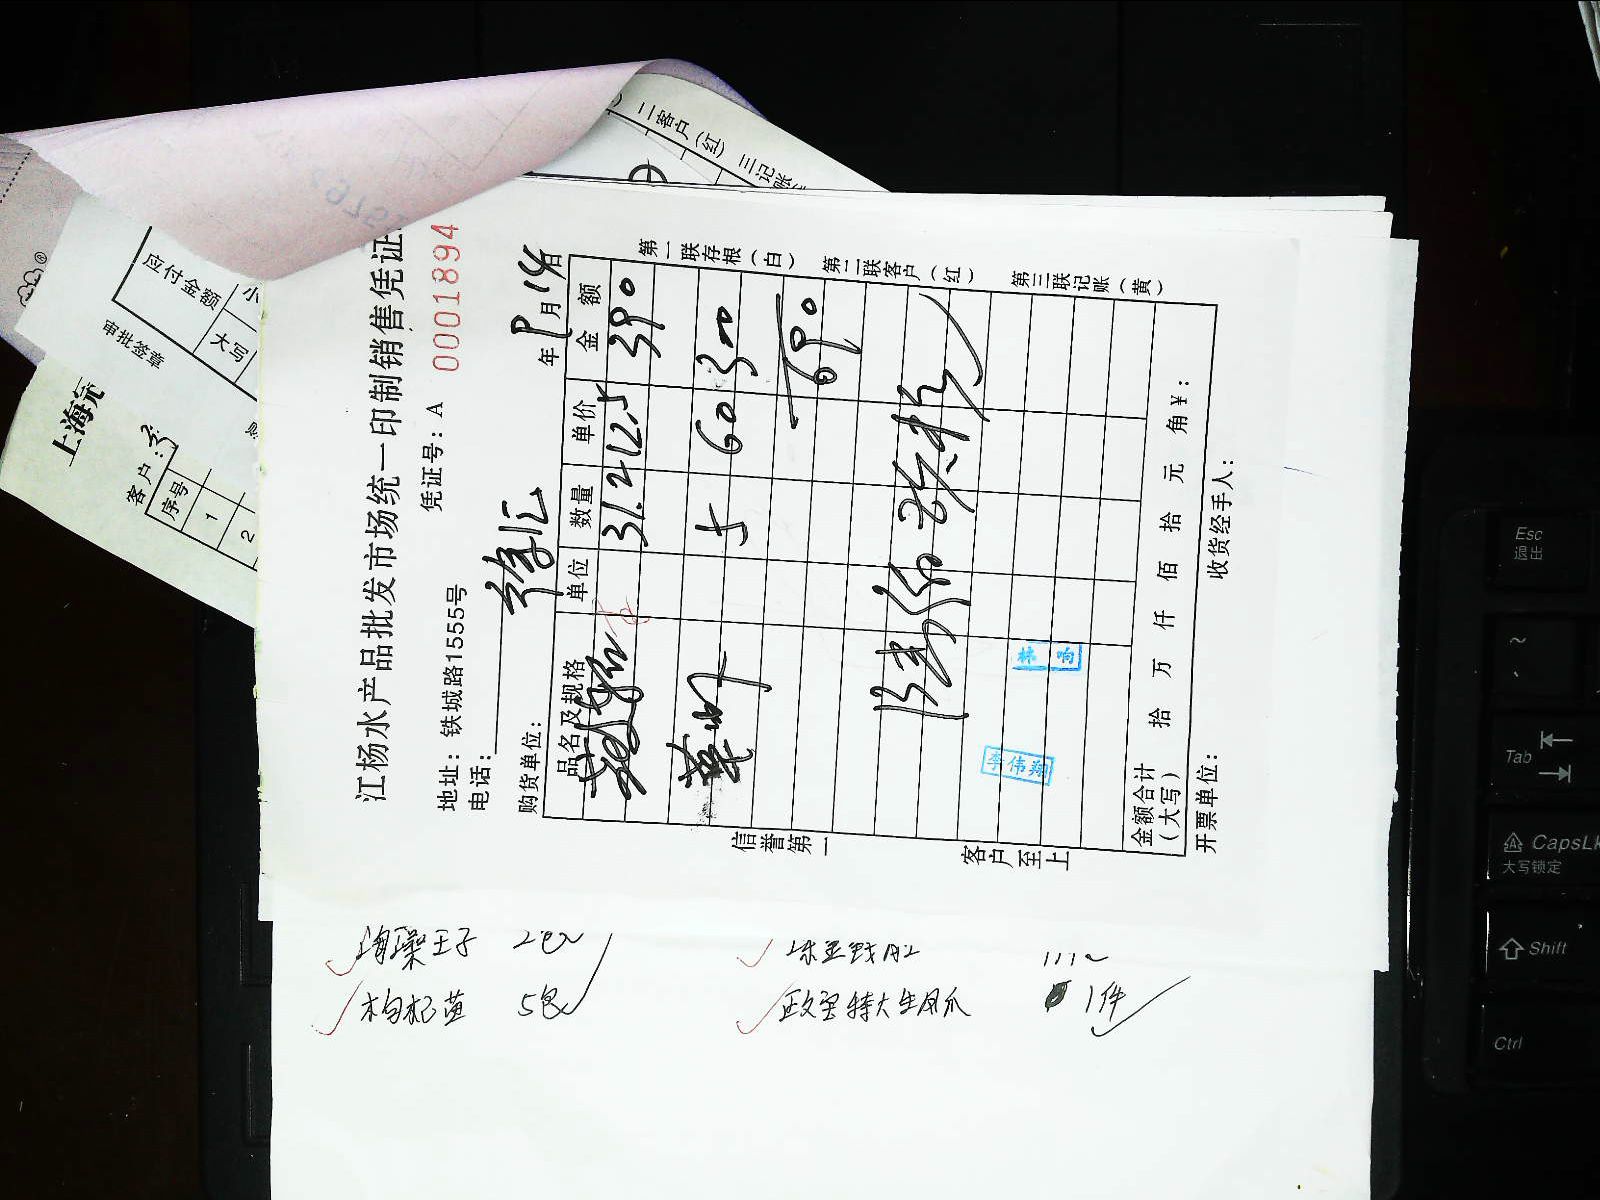 江杨水产品批发市场统一印制销售凭证
凭证号：A 0001894
地址：铁城路1555号
电话：
购货单位： 徐汇 年 9月14日
品名及规格 单位 数量 单价 金额
31.2 12.5 390
草虾 5 60 300
690
李伟翔
林响
金额合计（大写） 拾 万 仟 佰 拾 元 角 ¥：
开票单位： 收货经手人：
第一联存根（白） 第二联客户（红） 第三联记账（黄）
信誉第一 客户至上
王子 2包
枸杞 5包
特大生凤爪 1件
二客户（红） 三记账
应付金额 小
大写
审批签章
上海
客户：
序号
1
2
Esc
退出
Tab
CapsLk
大写锁定
Shift
Ctrl